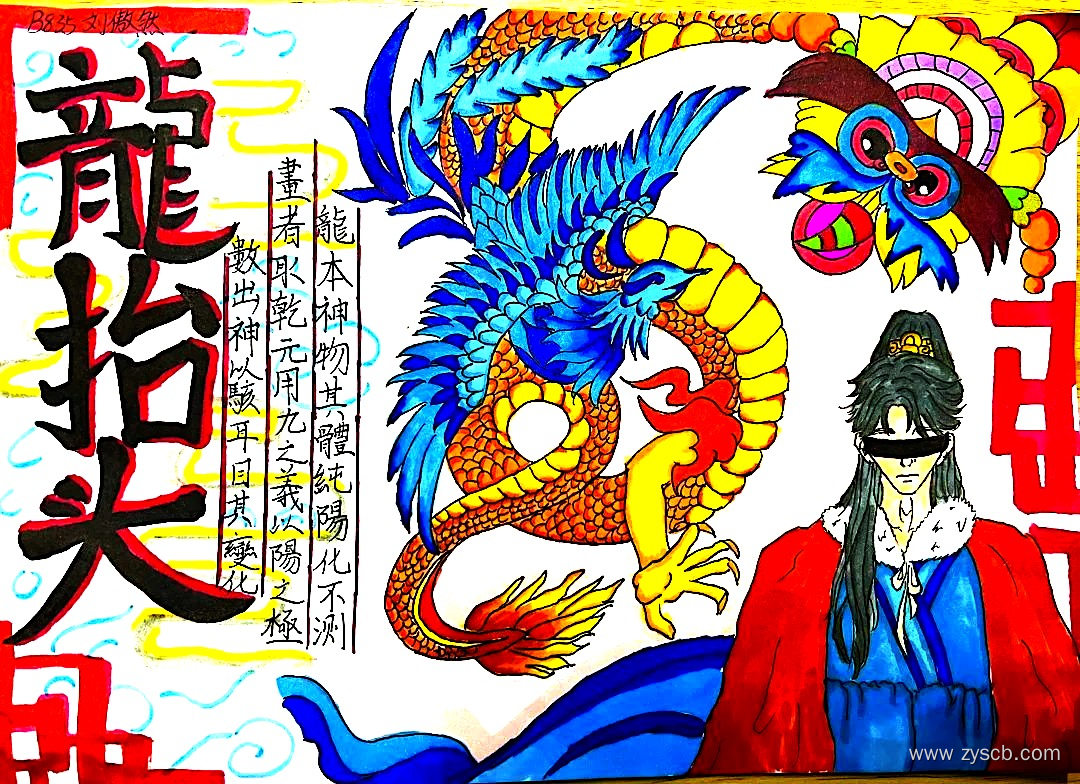 B835 刘傲然
龍抬头
龍本神物其體純陽化不测
畫者取乾元用九之義以陽之極
數出神以駭耳目其變化
www.zyscb.com